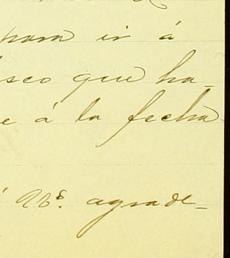 para ir á
seo que ha-
e á la fecha
agrade-